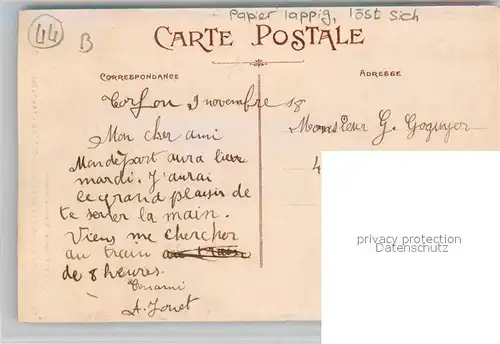 papier lappig, löst sich
44
B
CARTE POSTALE
CORRESPONDANCE
ADRESSE
Torfou 9 novembre 18
Mon cher ami
Mon départ aura lieu
mardi. J'aurai
le grand plaisir de
te serrer la main.
Viens me chercher
au train au train
de 8 heures.
Ton ami
A. Jouet
Monsieur G. Goguyer
4
privacy protection
oldthing.de